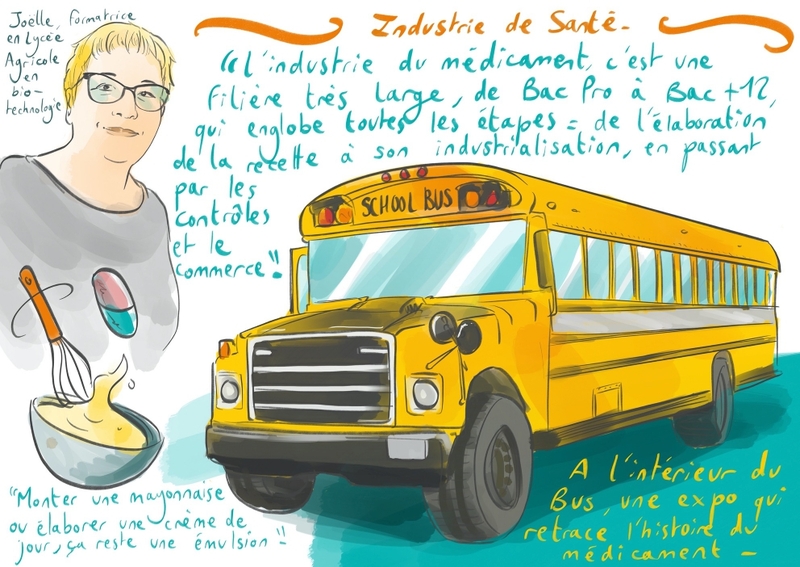 Joëlle, formatrice
en Lycée
Agricole
en
bio-
technologie
Industrie de Santé -
"L'industrie du médicament, c'est une
filière très large, de Bac Pro à Bac +12,
qui englobe toutes les étapes = de l'élaboration
de la recette à son industrialisation, en passant
par les
contrôles
et le
commerce"
SCHOOL BUS
"Monter une mayonnaise
ou élaborer une crème de
jour, ça reste une émulsion"
A l'intérieur du
Bus, une expo qui
retrace l'histoire du
médicament -